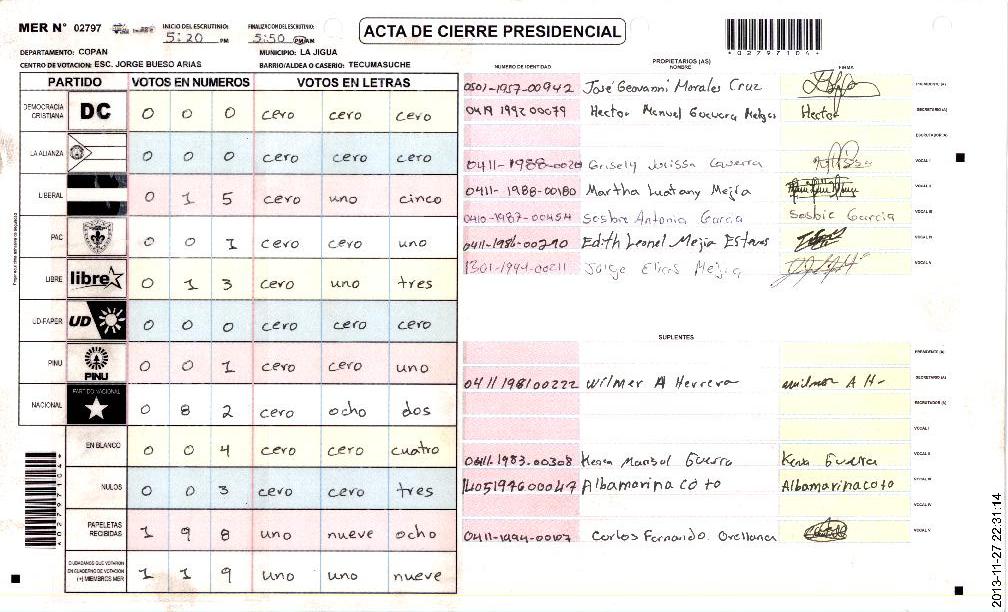 MER N° 02797
INICIO DEL ESCRUTINIO: 5:20 PM
FINALIZACION DEL ESCRUTINIO: 5:50 PM
ACTA DE CIERRE PRESIDENCIAL
*02797104*
DEPARTAMENTO: COPAN
MUNICIPIO: LA JIGUA
CENTRO DE VOTACION: ESC. JORGE BUESO ARIAS
BARRIO/ALDEA O CASERIO: TECUMASUCHE
PARTIDO VOTOS EN NUMEROS VOTOS EN LETRAS
DEMOCRACIA CRISTIANA DC 0 0 0 cero cero cero
LA ALIANZA 0 0 0 cero cero cero
LIBERAL 0 1 5 cero uno cinco
PAC 0 0 1 cero cero uno
LIBRE libre 0 1 3 cero uno tres
UD-FAPER UD 0 0 0 cero cero cero
PINU PINU 0 0 1 cero cero uno
NACIONAL PARTIDO NACIONAL 0 8 2 cero ocho dos
EN BLANCO 0 0 4 cero cero cuatro
NULOS 0 0 3 cero cero tres
PAPELETAS RECIBIDAS 1 9 8 uno nueve ocho
CIUDADANOS QUE VOTARON EN CUADERNO DE VOTACION (+) MIEMBROS MER 1 1 9 uno uno nueve
*02797104*
PROPIETARIOS (AS)
NUMERO DE IDENTIDAD NOMBRE FIRMA
0501-1957-00942 José Geovanni Morales Cruz PRESIDENTE (A)
0419 1992 00079 Hector Manuel Guevara Hector SECRETARIO (A)
ESCRUTADOR (A)
0411-1988-0020 Grisely VOCAL I
0411-1988-00180 Martha Lustany Mejia VOCAL II
0410-1987-00454 Antonia Garcia Garcia VOCAL III
0411-1986-00290 Edith Leonel Mejia VOCAL IV
1301-1994-00211 Jorge Elias Mejia VOCAL V
SUPLENTES
PRESIDENTE (A)
0411 1981 00222 Wilmer A Herrera A H- SECRETARIO (A)
ESCRUTADOR (A)
VOCAL I
0411-1983-00308 Marisol Guerra Guerra VOCAL II
1405194600047 Albamarina coto Albamarinacoto VOCAL III
VOCAL IV
0411-1994-00107 Carlos Fernando Orellana VOCAL V
2013-11-27 22:31:14